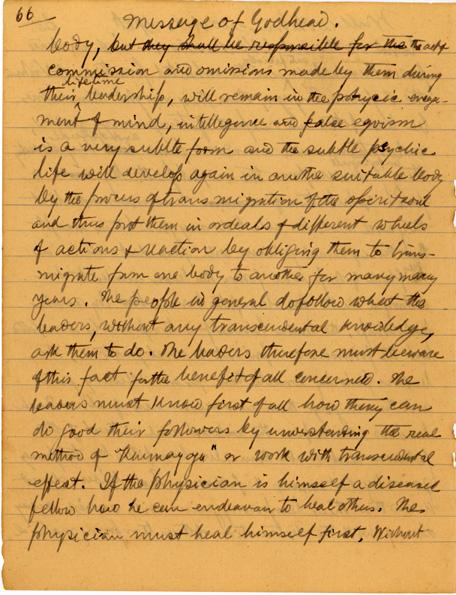 66
Message of Godhead.
body, but they shall be responsible for the the act of
commission and omissions made by them during
lifetime
their leadership, will remain in the phycic engage-
ment of mind, intellegence and false egoism
is a very subtle form and the subtle psychic
life will develop again in another suitable body
by the process of transmigration of the spirit soul
and thus put them in ordeals of different wheels
of actions & reaction by obliging them to trans-
migrate from one body to another for many many
years. The people in general do follow what the
leaders, without any transcendental knowledge,
ask them to do. The leaders therefore must beware
of this fact for the benefit of all concerned. The
leaders must know first of all how they can
do good their followers by understanding the real
method of "Karmayoga" or work with transcendental
effect. If the physician is himself a diseased
fellow how he can endeavour to heal others. The
physician must heal himself first. Without